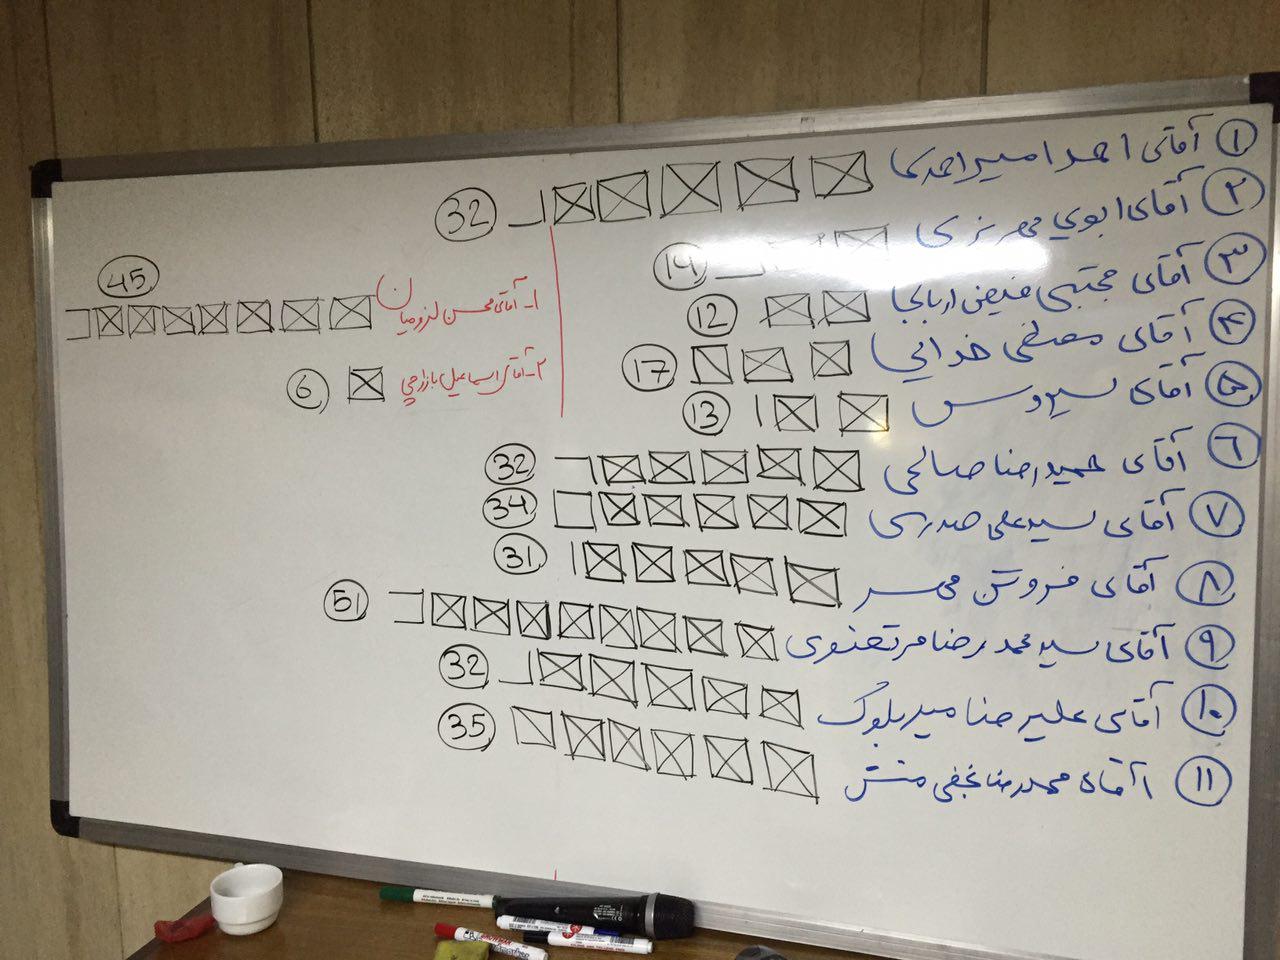 ۱ آقای احد امیراحمدی 32
۲ آقای ابوی مهریزی 14
۳ آقای مجتبی فیض اربابی 12
۴ آقای مصطفی خدایی 17
۵ آقای سیروس 13
۶ آقای حمیدرضا صالحی 32
۷ آقای سیدعلی صدری 34
۸ آقای فروتن مهر 31
۹ آقای سید محمدرضا مرتضوی 51
۱۰ آقای علیرضا میربلوک 32
۱۱ آقای محمدرضا نجفی منش 35
۱- آقای محسن لزومیان 45
۲- آقای اسماعیل بازارچی 6